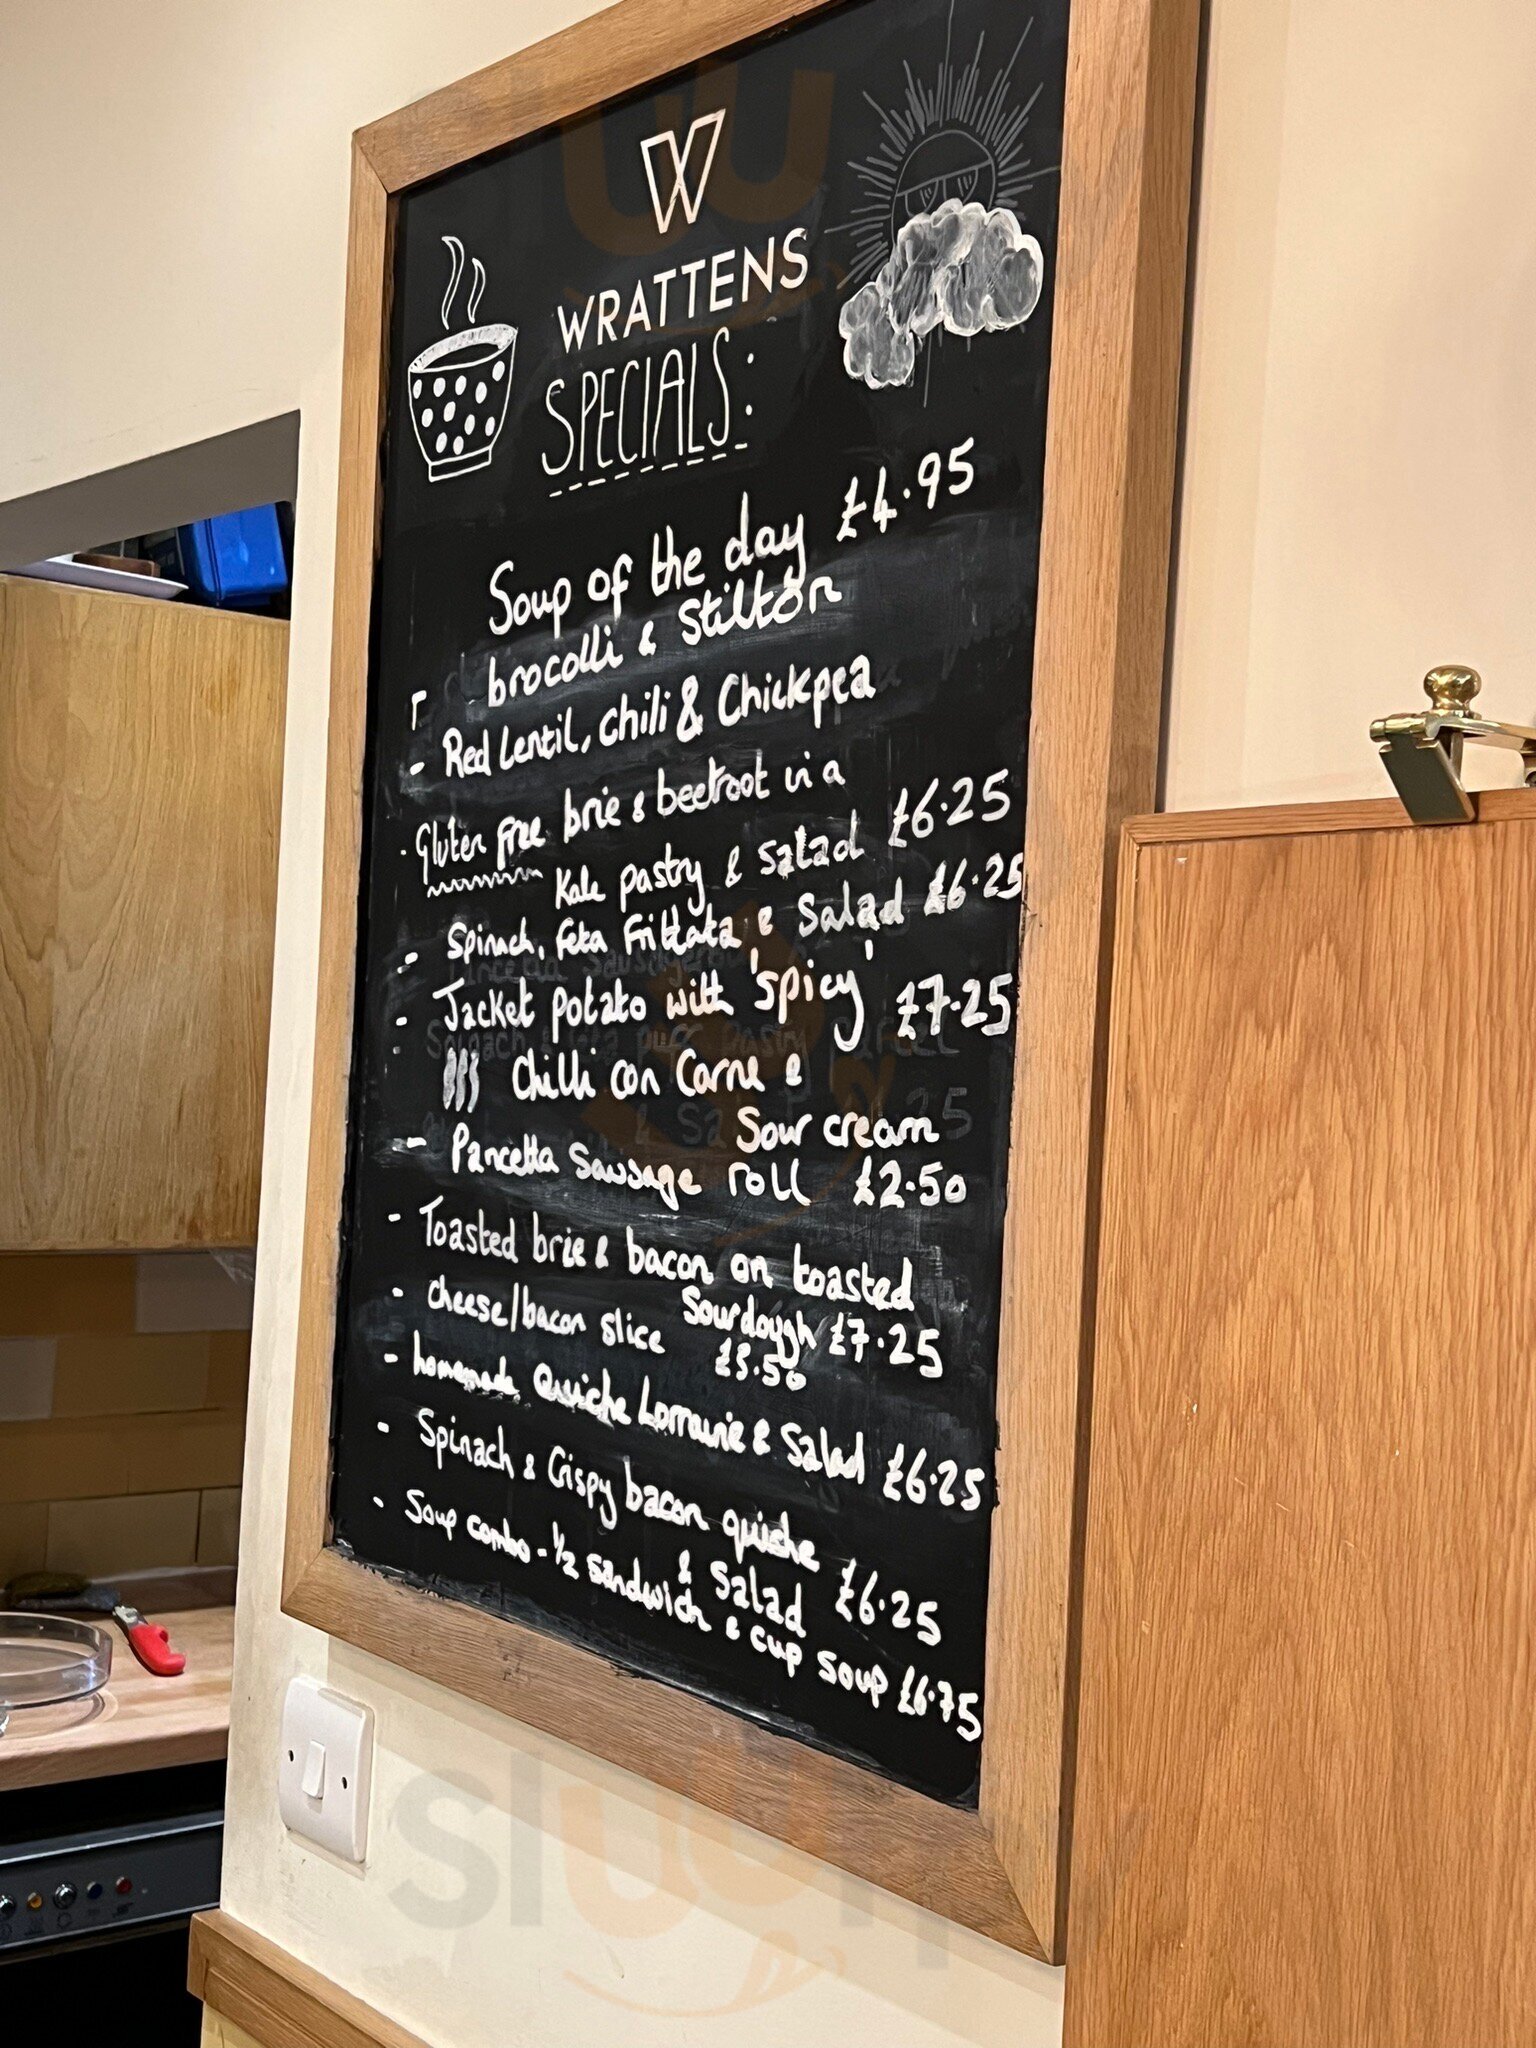 W
WRATTENS
SPECIALS:
Soup of the day £4.95
brocolli & stilton
- Red lentil, chili & Chickpea
· Gluten free brie & beetroot in a
Kale pastry & salad £6.25
- Spinach, feta frittata & Salad £6.25
- Jacket potato with 'spicy' £7.25
Chilli con Carne &
Sour cream
- Pancetta sausage roll £2.50
- Toasted brie & bacon on toasted
Sourdough £7.25
- cheese/bacon slice £3.50
- homemade Quiche Lorraine & Salad £6.25
- Spinach & Crispy bacon quiche
& Salad £6.25
- Soup combo - 1/2 sandwich & cup soup £6.75